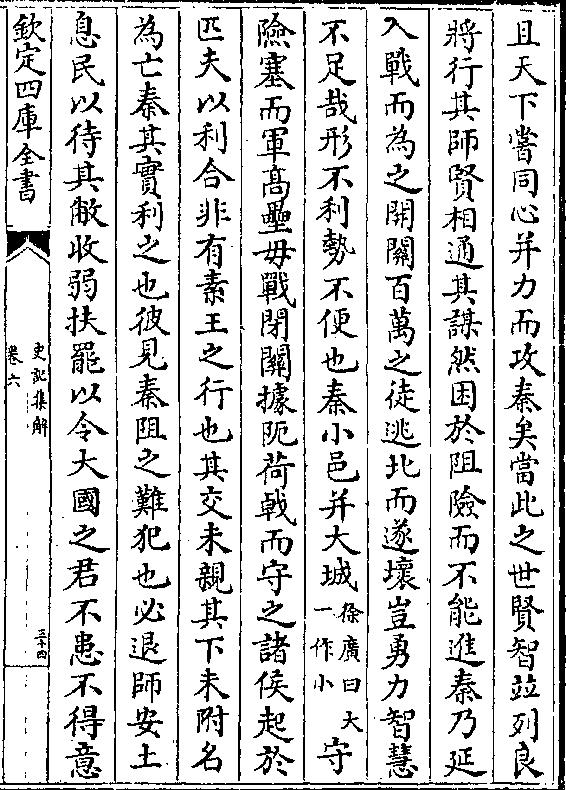 且天下嘗同心并力而攻秦矣當此之世賢智並列良
將行其師賢相通其謀然困於阻險而不能進秦乃延
入戰而為之開關百萬之徒逃北而遂壞豈勇力智慧
不足哉形不利勢不便也秦小邑并大城徐廣曰大一作小守
險塞而軍髙壘毋戰閉關據阨荷戟而守之諸侯起於
匹夫以利合非有素王之行也其交未親其下未附名
為亡秦其實利之也彼見秦阻之難犯也必退師安土
息民以待其敝收弱扶罷以令大國之君不患不得意
欽定四庫全書
史記集解
卷六
三十四